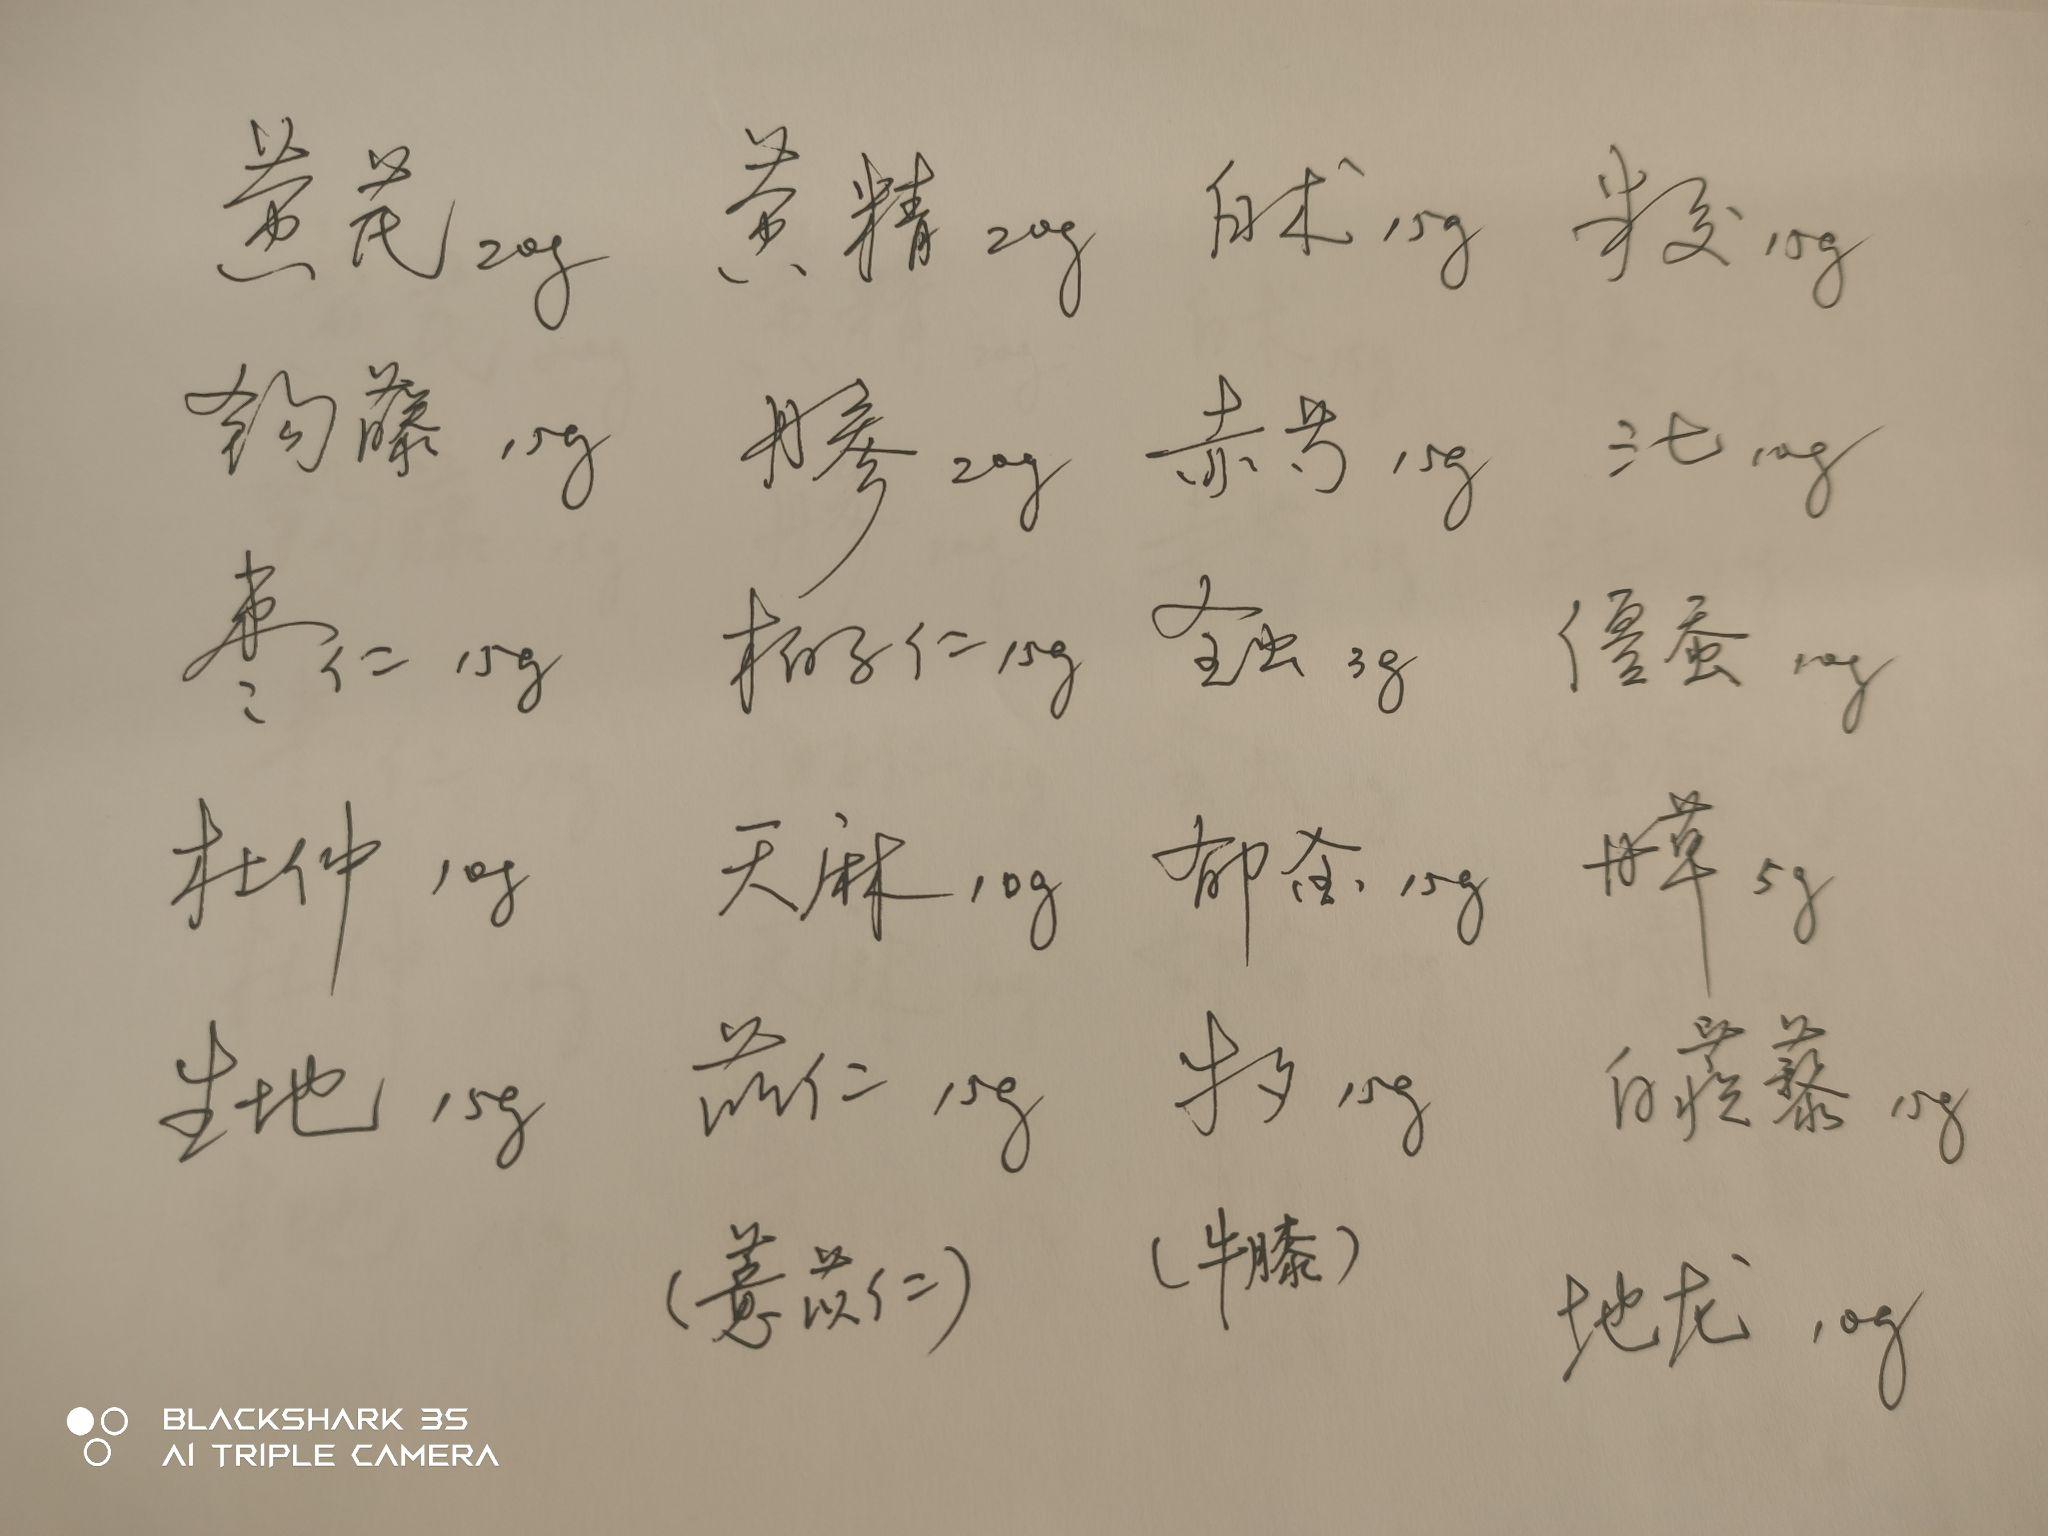 黄芪 20g 黄精 20g 白术 15g 半夏 15g
钩藤 15g 丹参 20g 赤芍 15g 三七 10g
枣仁 15g 柏子仁 15g 全虫 3g 僵蚕 10g
杜仲 10g 天麻 10g 郁金 15g 甘草 5g
生地 15g 苡仁 15g 牛夕 15g 白蒺藜 15g
(薏苡仁) (牛膝) 地龙 10g
BLACKSHARK 3S
AI TRIPLE CAMERA